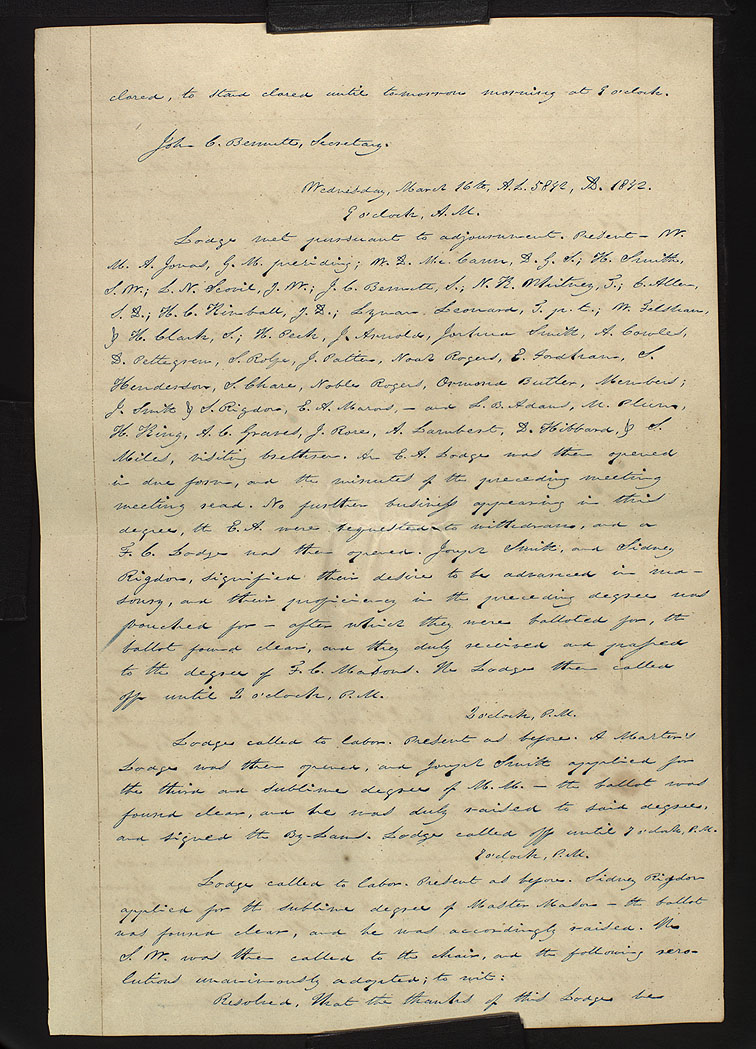 closed, to stand closed until tomorrow morning at 9 o'clock.
John C. Bennett, Secretary.
Wednesday, March 16th, A.L. 5842, A.D. 1842.
9 o'clock, A.M.
Lodge met pursuant to adjournment. Present – W.
M. A. Jonas, G. M. presiding; W. D. Mc. Cann, D. G. S.; H. Smith,
S. W.; L. N. Scovil, J. W.; J. C. Bennett, S.; N. K. Whitney, T.; C. Allen,
S. D.; H. C. Kimball, J. D.; Lyman Leonard, T. p. t.; W. Felshaw,
& H. Clark, S.; H. Peck, J. Arnold, Joshua Smith, A. Cowles,
D. Pettegrew, S. Rolfe, J. Patten, Noah Rogers, E. Fordham, S.
Henderson, S. Chase, Noble Rogers, Ormond Butler, Members;
J. Smith & S. Rigdon, E. A. Masons, – and L. B. Adams, M. Plum,
H. King, A. C. Graves, J. Rose, A. Lambert, D. Hibbard, & S.
Miles, visiting brethren. An E. A. Lodge was then opened
in due form, and the minutes of the preceding meeting
meeting read. No further business appearing in this
degree, the E. A. were requested to withdraw, and a
F. C. Lodge was then opened. Joseph Smith, and Sidney
Rigdon, signified their desire to be advanced in ma-
sonry, and their proficiency in the preceding degree was
vouched for – after which they were balloted for, the
ballot found clear, and they duly received and passed
to the degree of F. C. Masons. The Lodge then called
off until 2 o'clock, P.M.
2 o'clock, P.M.
Lodge called to labor. Present as before. A Master's
Lodge was then opened, and Joseph Smith applied for
the third and sublime degree of M. M. – the ballot was
found clear, and he was duly raised to said degree,
and signed the By-Laws. Lodge called off until 7 o'clock, P.M.
7 o'clock, P.M.
Lodge called to labor. Present as before. Sidney Rigdon
applied for the sublime degree of Master Mason – the ballot
was found clear, and he was accordingly raised. The
S. W. was then called to the chair, and the following reso-
lutions unanimously adopted; to wit:
Resolved, That the thanks of this Lodge be